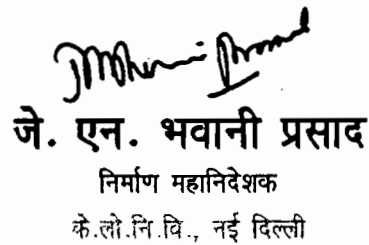 जे. एन. भवानी प्रसाद
निर्माण महानिदेशक
के.लो.नि.वि., नई दिल्ली